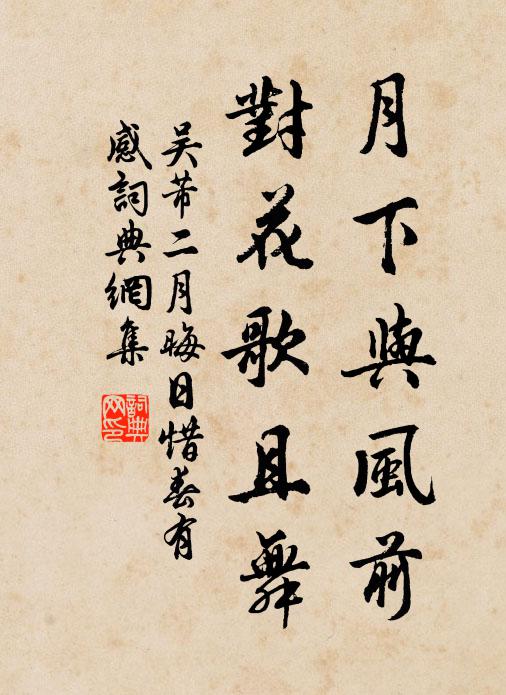 月下與風前
對花歌且舞
吳芾二月晦日惜春有
感詞典網集
詞典
网印